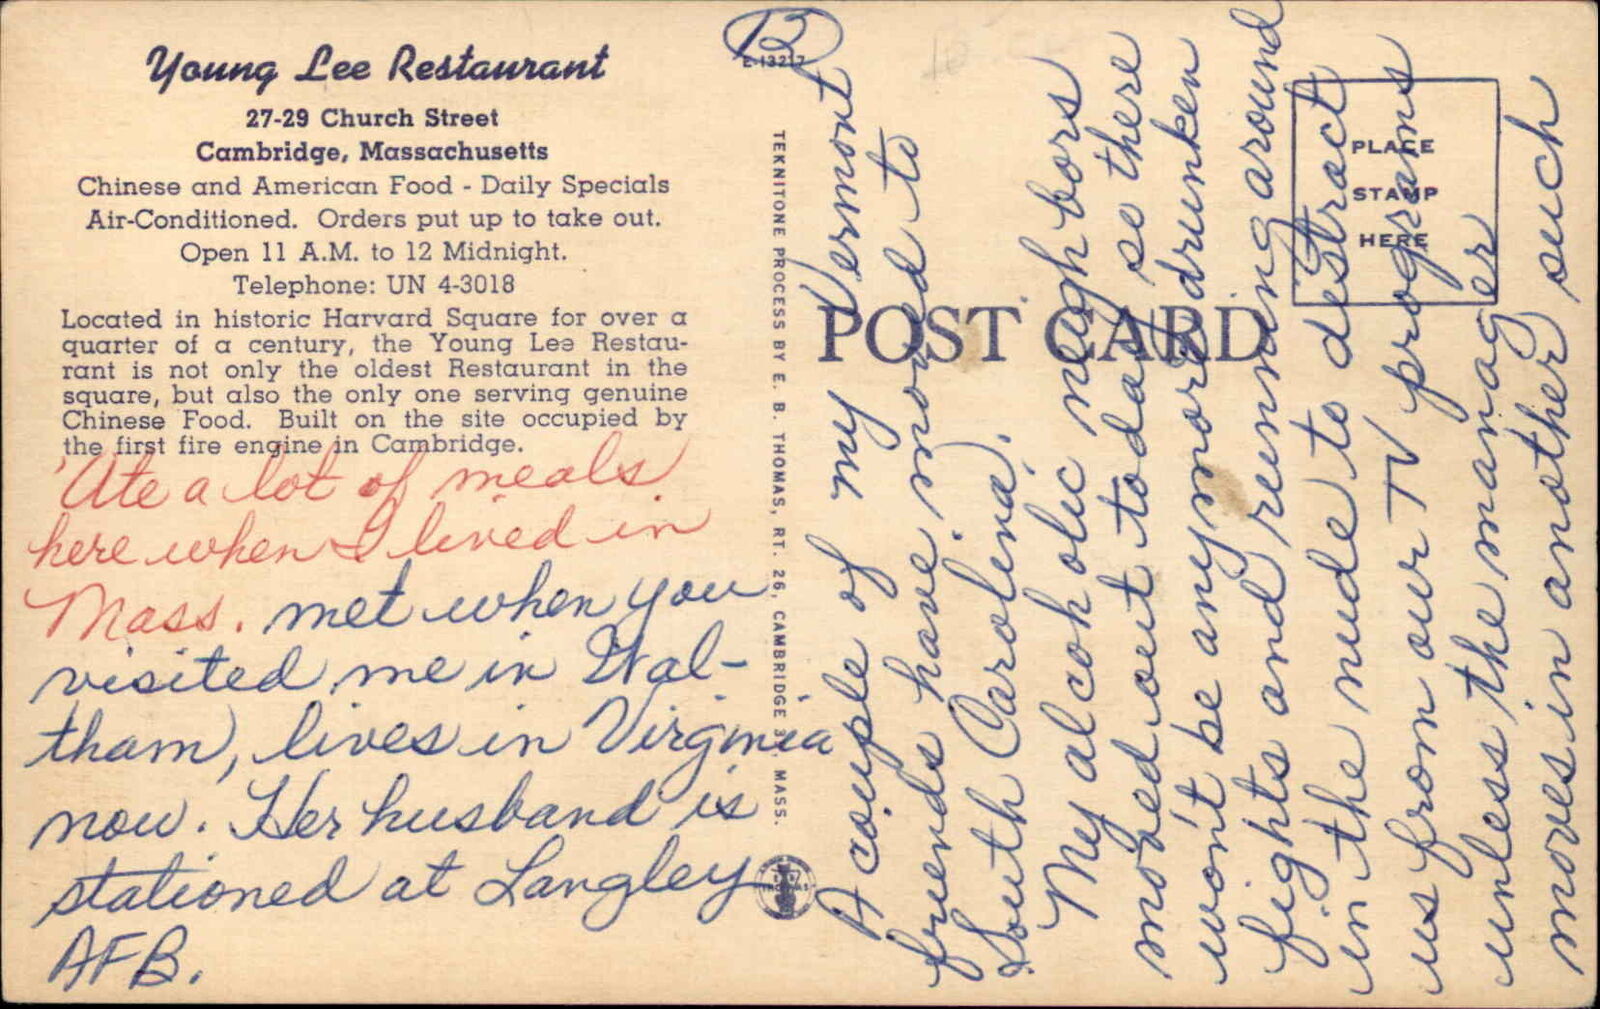 Young Lee Restaurant
27-29 Church Street
Cambridge, Massachusetts
Chinese and American Food - Daily Specials
Air-Conditioned. Orders put up to take out.
Open 11 A.M. to 12 Midnight.
Telephone: UN 4-3018
Located in historic Harvard Square for over a
quarter of a century, the Young Lee Restau-
rant is not only the oldest Restaurant in the
square, but also the only one serving genuine
Chinese Food. Built on the site occupied by
the first fire engine in Cambridge.
'Ate a lot of meals
here when I lived in
Mass. met when you
visited me in Wal-
tham, lives in Virginia
now. Her husband is
stationed at Langley
AFB.
B
E-13217
TEKNITONE PROCESS BY E. B. THOMAS, RT. 26, CAMBRIDGE 3, MASS.
POST CARD
PLACE
STAMP
HERE
A couple of my Vermont
friends have moved to
South Carolina.
My alcoholic neighbors
moved out today so there
won't be anymore drunken
fights and running around
in the nude to distract
us from our TV programs
unless the manager
moves in another such